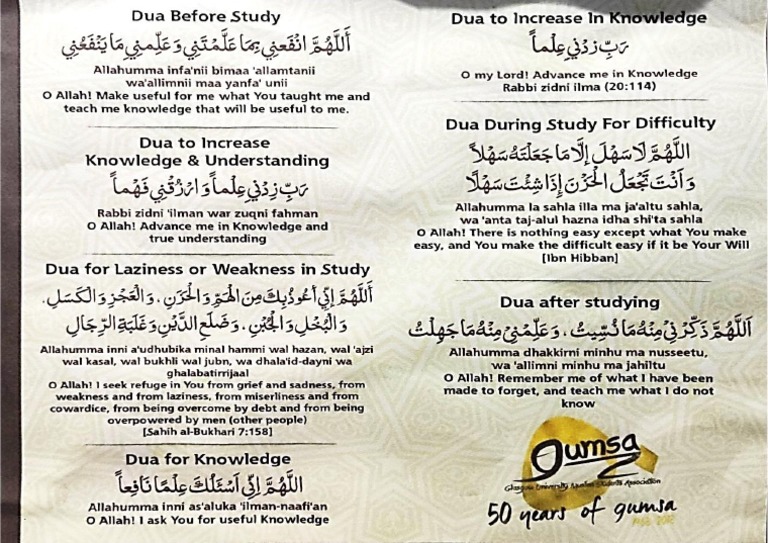 Dua Before Study
أَللَّهُمَّ انْفَعْنِي بِمَا عَلَّمْتَنِي وَعَلِّمْنِي مَا يَنْفَعُنِي
Allahumma infa'nii bimaa 'allamtanii
wa'allimnii maa yanfa' unii
O Allah! Make useful for me what You taught me and
teach me knowledge that will be useful to me.
Dua to Increase
Knowledge & Understanding
رَبِّ زِدْنِي عِلْماً وَارْزُقْنِي فَهْماً
Rabbi zidni 'ilman war zuqni fahman
O Allah! Advance me in Knowledge and
true understanding
Dua for Laziness or Weakness in Study
أَللَّهُمَّ إِنِّي أَعُوذُبِكَ مِنَ الْهَمِّ وَالْحَزَنِ، وَالْعَجْزِ وَالْكَسَلِ،
وَالْبُخْلِ وَالْجُبْنِ، وَضَلَعِ الدَّيْنِ وَغَلَبَةِ الرِّجَالِ
Allahumma inni a'udhubika minal hammi wal hazan, wal 'ajzi
wal kasal, wal bukhli wal jubn, wa dhala'id-dayni wa
ghalabatirrijaal
O Allah! I seek refuge in You from grief and sadness, from
weakness and from laziness, from miserliness and from
cowardice, from being overcome by debt and from being
overpowered by men (other people)
[Sahih al-Bukhari 7:158]
Dua for Knowledge
اللَّهُمَّ إِنِّي أَسْئَلُكَ عِلْمًا نَافِعاً
Allahumma inni as'aluka 'ilman-naafi'an
O Allah! I ask You for useful Knowledge
Dua to Increase In Knowledge
رَبِّ زِدْنِي عِلْماً
O my Lord! Advance me in Knowledge
Rabbi zidni ilma (20:114)
Dua During Study For Difficulty
اللَّهُمَّ لَا سَهْلَ إِلَّا مَا جَعَلْتَهُ سَهْلاً
وَأَنْتَ تَجْعَلُ الْحَزْنَ إِذَا شِئْتَ سَهْلًا
Allahumma la sahla illa ma ja'altu sahla,
wa 'anta taj-alul hazna idha shi'ta sahla
O Allah! There is nothing easy except what You make
easy, and You make the difficult easy if it be Your Will
[Ibn Hibban]
Dua after studying
اَللَّهُمَّ ذَكِّرْنِيْ مِنْهُ مَا نُسِّيتُ، وَعَلِّمْنِيْ مِنْهُ مَا جَهِلْتُ
Allahumma dhakkirni minhu ma nusseetu,
wa 'allimni minhu ma jahiltu
O Allah! Remember me of what I have been
made to forget, and teach me what I do not
know
Qumsa
Glasgow University Muslim Students Association
50 years of gumsa